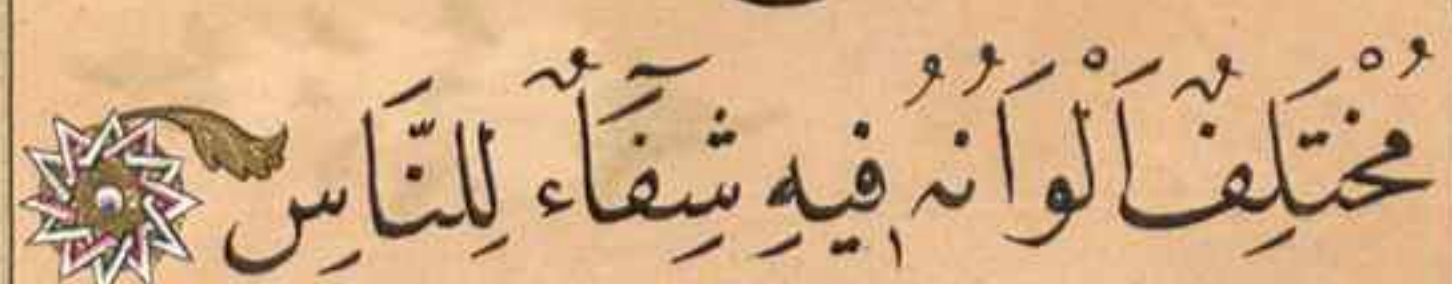 مُخْتَلِفٌ اَلْوَانُهُ فِيهِ شِفَٓاءٌ لِلنَّاسِ